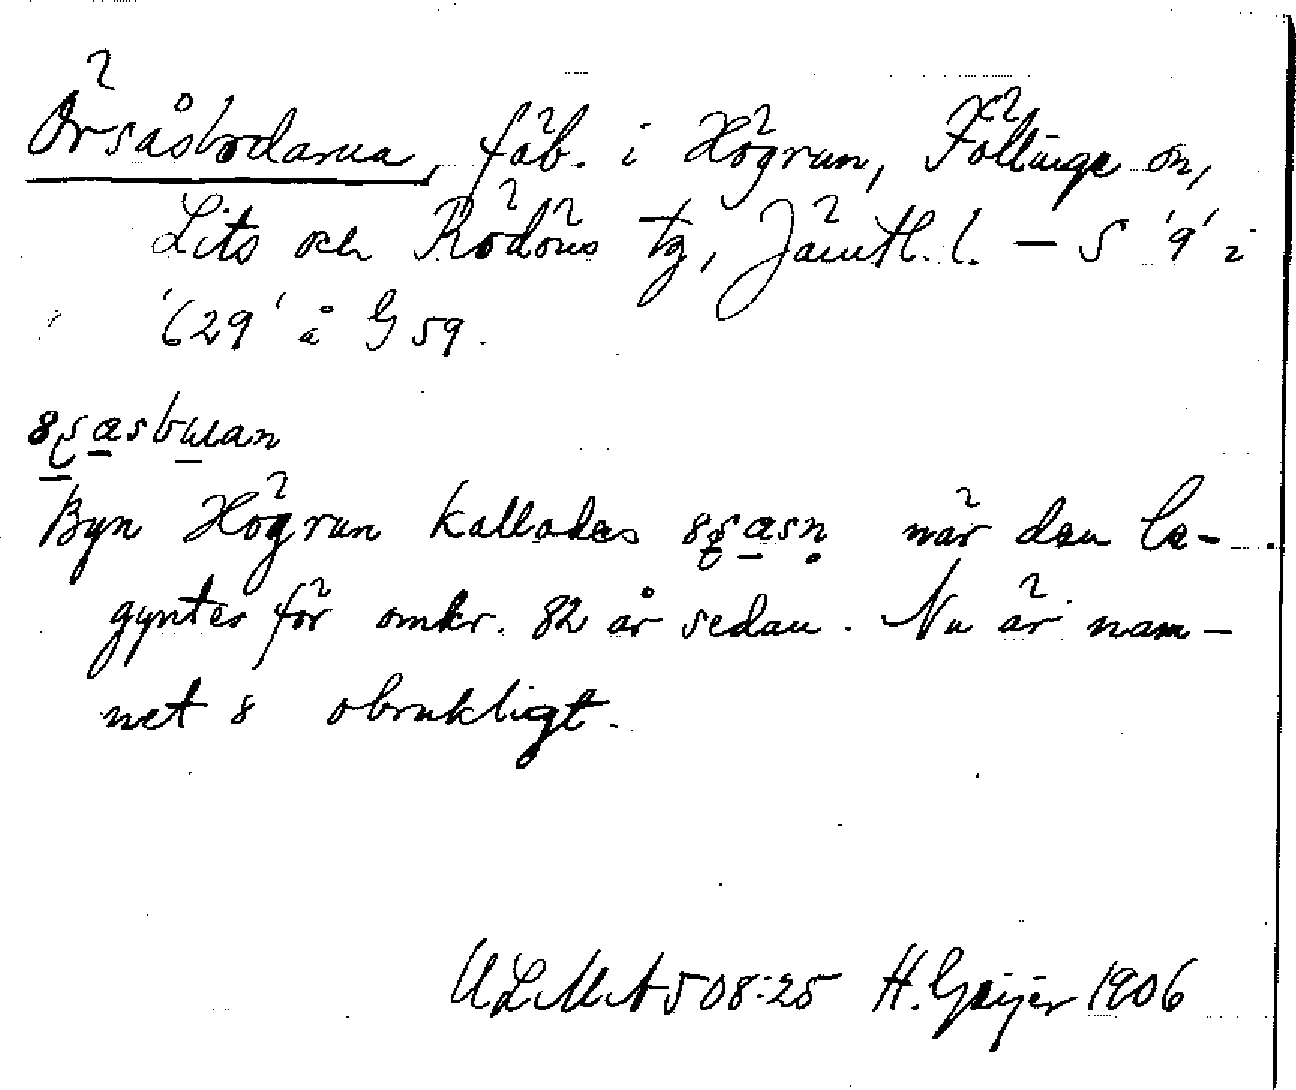 Örsåsbodarna, fäb. i Högrun, Föllinge sn,
Lits och Rödöns tg, Jämtl. l. – S '9' i
'629' å G 59.
Byn Högrun kallades när den be-
gyntes för omkr. 82 år sedan. Nu är nam-
net 8 obrukligt.
ULMA 508:25 H. Geijer 1906